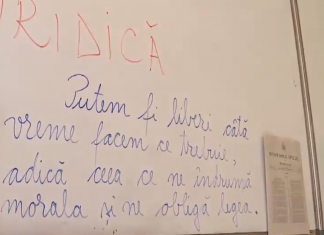 RIDICĂ
Putem fi liberi câtă
vreme facem ce trebuie,
adică ceea ce ne îndrumă
morala și ne obligă legea.